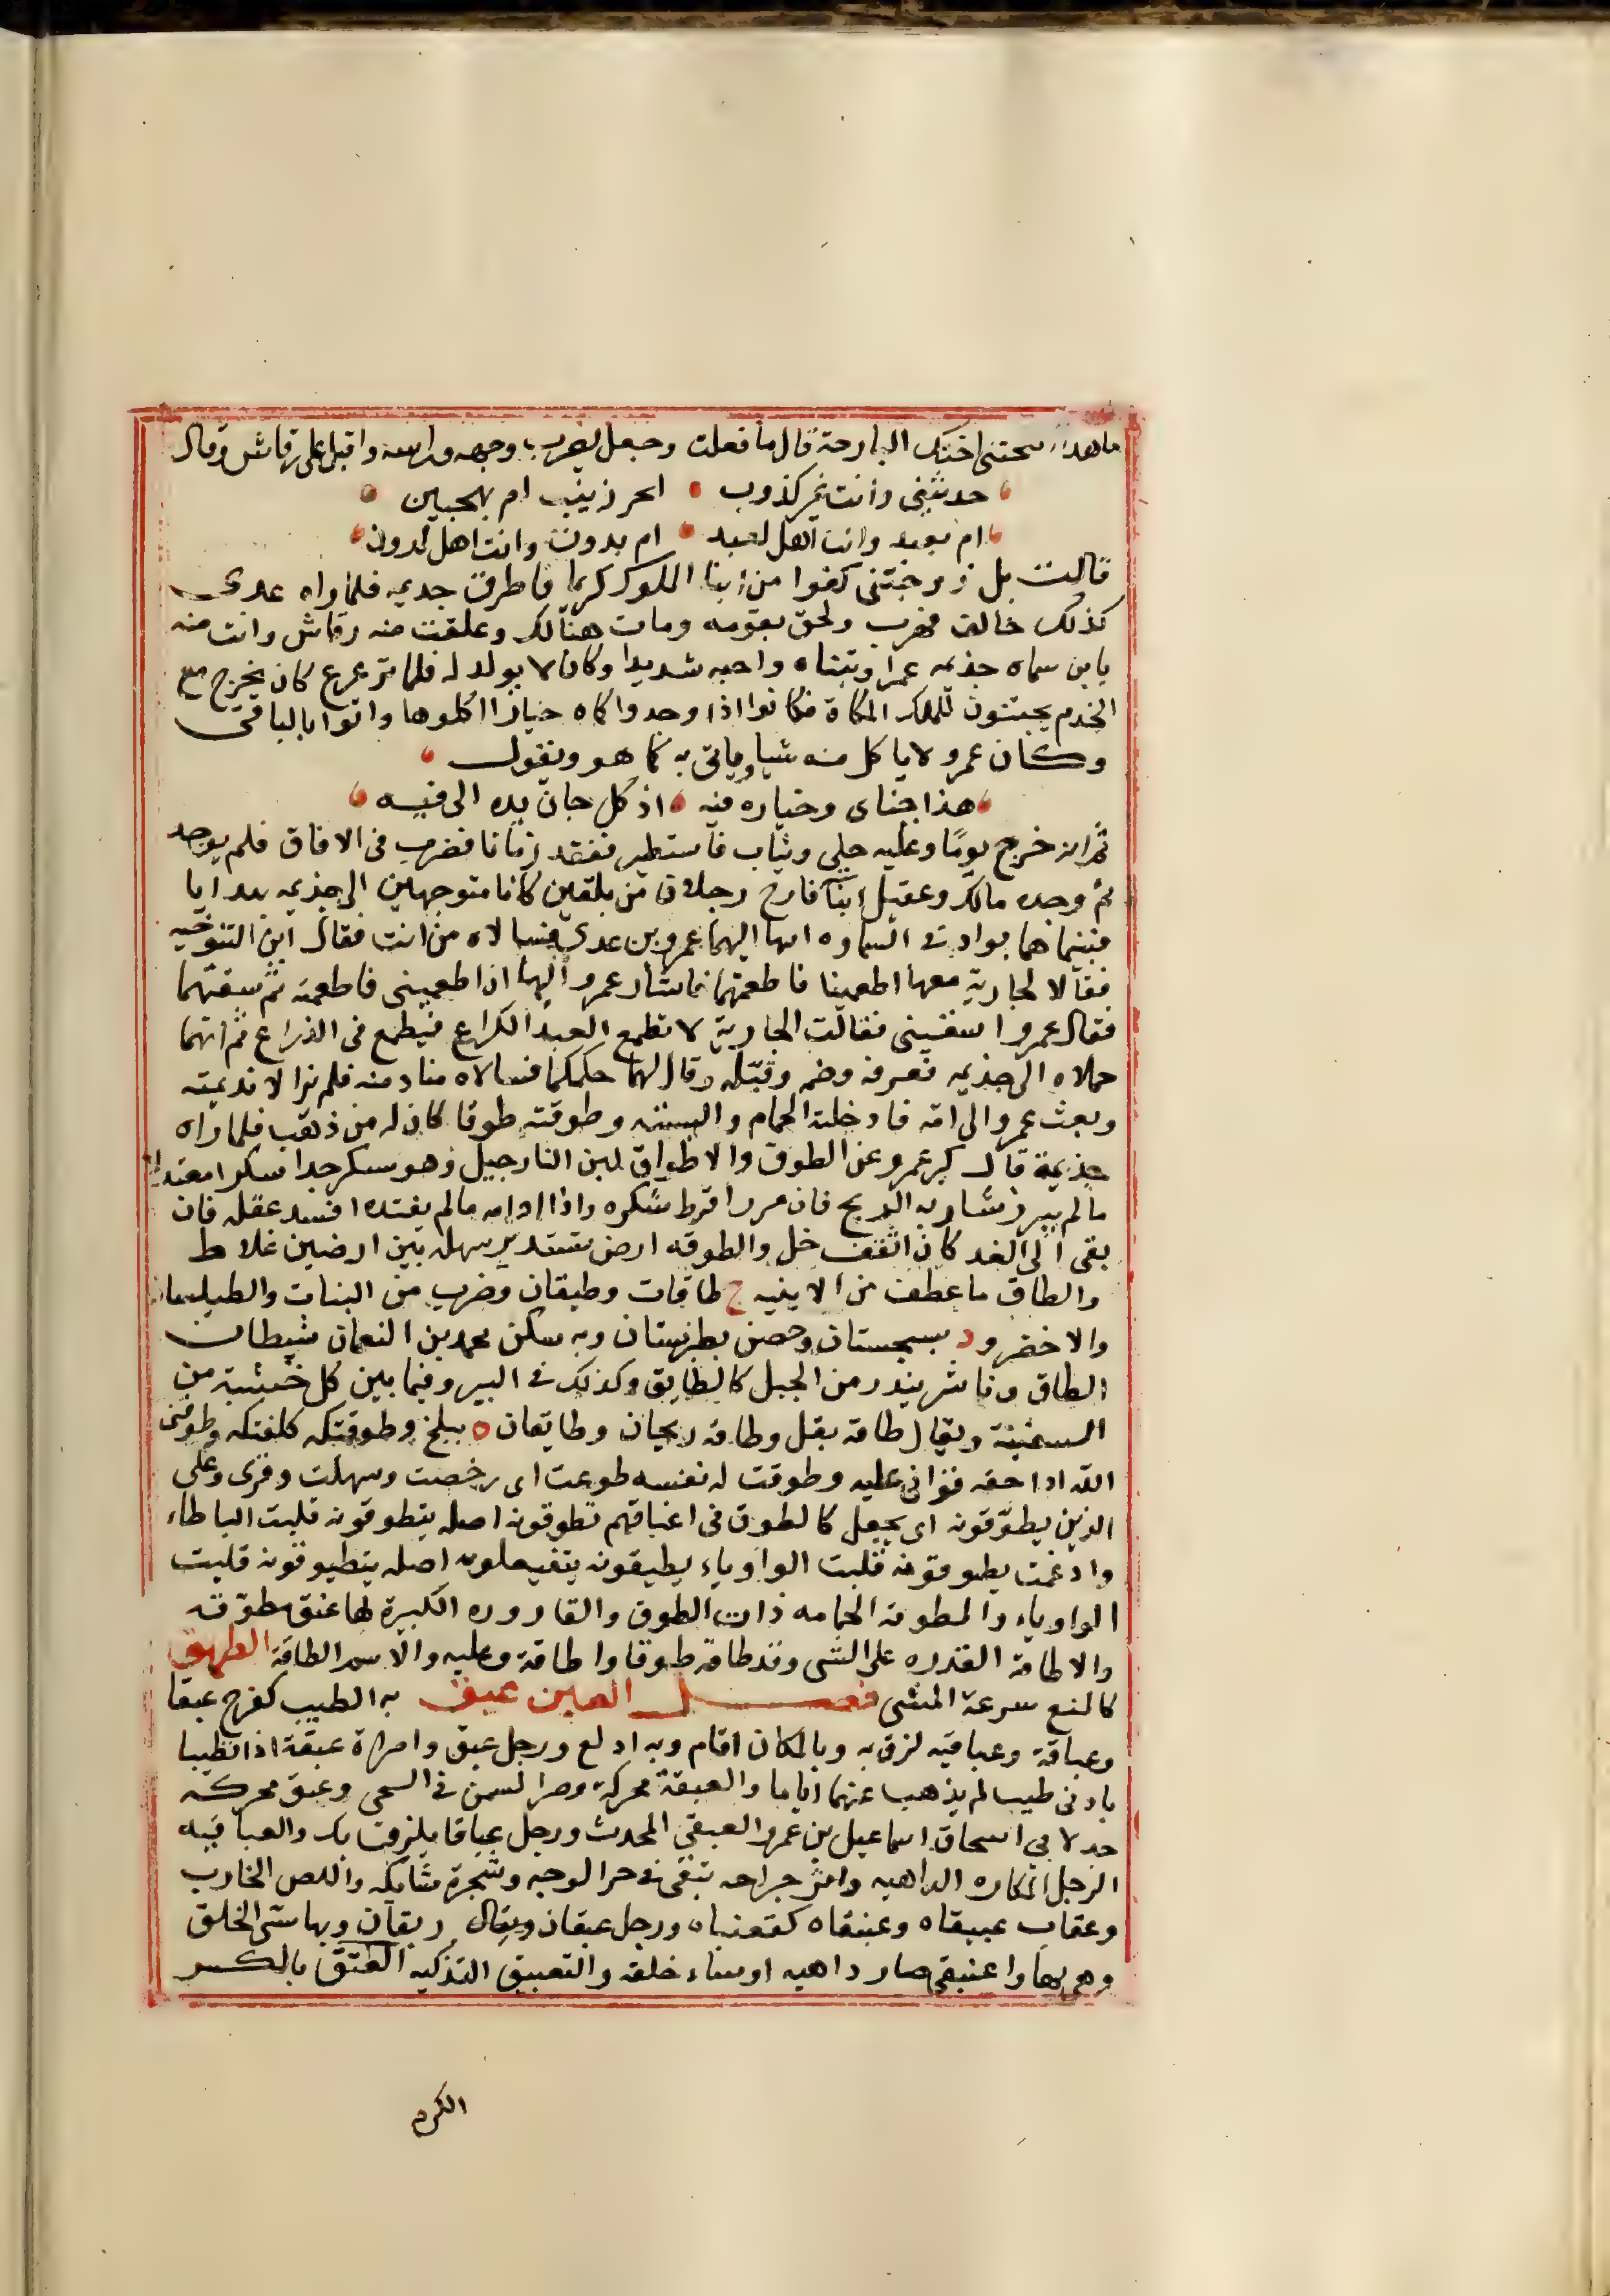 ماهذا انكحتني اختك البارحة قال ما فعلت وجعل يضرب وجهه وراسه واقبل على رقاش وقال
حدثيني وانت غير كذوب ابحر زنيت ام بهجين
ام بعبد وانت اهل لعبد ام بدون وانت اهل لدون
قالت بل زوجتني كفوا من ابنا الملوك كريما فاطرق جذيمه فلما راه عدى
كذلك خاف فهرب ولحق بقومه ومات هنالك وعلقت منه رقاش واتت منه
بابن سماه جذيمه عمرا وتبناه واحبه شديدا وكان لا يولد له فلما ترعرع كان يخرج مع
الخدم يجتنون للملك الكماة فكانوا اذا وجدوا كماه خيارا اكلوها واتوا بالباقى
وكان عمرو لا ياكل منه شيا وياتى به كما هو ويقول
هذا جناى وخياره فيه اذ كل جان يده الى فيه
ثم انه خرج يوما وعليه حلى وثياب فاستطير ففقد زمانا فضرب فى الافاق فلم يوجد
ثم وجده مالك وعقيل ابنا فارج رجلان من بلقين كانا متوجهين الى جذيمه بهدايا
فبينما هما بواد فى السماوه انتهى اليهما عمرو بن عدى فسالاه من انت فقال ابن التنوخيه
فقالا لجارية معهما اطعمينا فاطعمتهما فاشار عمرو اليها ان اطعمينى فاطعمته ثم سقتهما
فقال عمرو اسقينى فقالت الجارية لا تطعم العبد الكراع فيطمع فى الذراع ثم انهما
حملاه الى جذيمه فعرفه وضمه وقبله وقال لهما حكمكما فسالاه منادمته فلم يزالا نديميه
وبعث عمرو الى امه فادخلته الحمام والبسته وطوقته طوقا كان له من ذهب فلما راه
جذيمة قال كبر عمرو عن الطوق والاطواق لبن النارجيل وهو مسكر جدا سكرا معتدلا
ما لم يبرز شاربه الريح فان برز افرط سكره واذا ادامه ما لم يعتده افسد عقله فان
بقى الى الغد كان اثقف خل والطوقه ارض تستدير سهله بين ارضين غلاظ
والطاق ما عطف من الابنيه ج طاقات وطيقان وضرب من الثياب والطيلسان
والاخضر ود بسجستان وحصن بطبرستان وبه سكن محمد بن النعمان شيطان
الطاق وناشز يندر من الجبل كالطايق وكذلك فى البير وفيما بين كل خشبة من
السفينة ويقال طاقه بقل وطاقة ريحان وطايقان ه ببلخ وطوقتكه كلفتكه وطوقنى
الله ادا حقه قوانى عليه وطوقت له نفسه طوعت اى رخصت وسهلت وقرى وعلى
الذين يطوقونه اى يجعل كالطوق فى اعناقهم تطوقونه اصله يتطوقونه قلبت التا طاء
وادغمت يطوقونه قلبت الواو ياء يطيقونه يتفيعلونه اصله يتطيوقونه قلبت
الواو ياء والمطوقة الحمامه ذات الطوق والقاروره الكبيرة لها عنق مطوقه
والاطاقة القدره على الشى وقد طاقه طوقا واطاقة وعليه والاسم الطاقة الطهق
كالمنع سرعة المشى فصل العين عبق به الطيب كفرح عبقا
وعباقة وعباقيه لزق به وبالمكان اقام وبه اولع ورجل عبق وامراة عبقة اذا تطيبا
بادنى طيب لم يذهب عنهما اياما والعبقة محركة وضر السمن فى النحى وعبق محركه
جد لابى اسحاق اسماعيل بن عمرو العبقى المحدث ورجل عباقا يلزق بك والعباقيه
الرجل المكاره الداهيه واثر جراحه تبقى فى حر الوجه وشجرة شائكه واللص الخارب
وعقاب عبيقاه وعبنقاه كقعنباه ورجل عبقان وبقال ربقان وبها سى الخلق
وهى بها واعبنقى صار داهيه اوساء خلقه والتعبيق التذكيه العتق بالكسر
الكرم